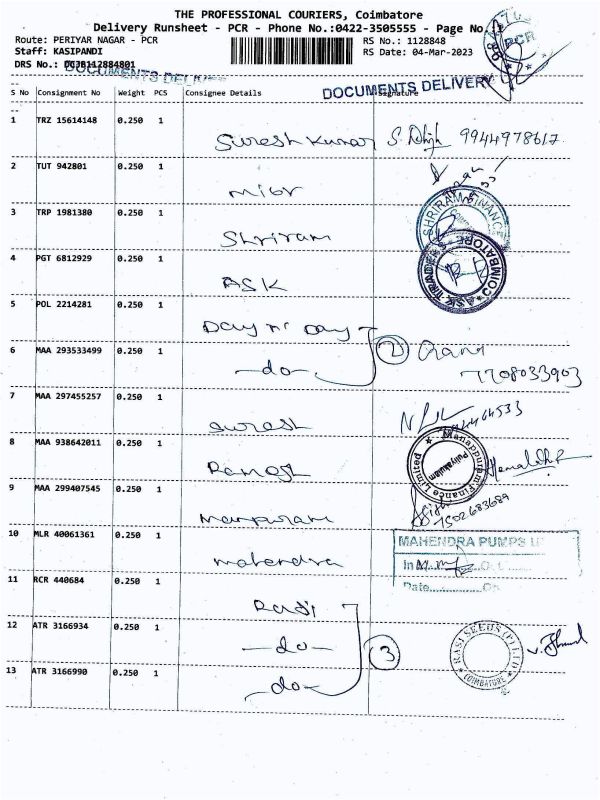 THE PROFESSIONAL COURIERS, Coimbatore
Delivery Runsheet - PCR - Phone No.:0422-3505555 - Page No
Route: PERIYAR NAGAR - PCR RS No.: 1128848
Staff: KASIPANDI RS Date: 04-Mar-2023
DRS No.:
DOCUMENTS DELIVERY
S No Consignment No Weight PCS Consignee Details Signature
1 TRZ 15614148 0.250 1 Suresh Kumar 9944978617
2 TUT 942801 0.250 1
3 TRP 1981380 0.250 1 Shriram SHRIRAM FINANCE
4 PGT 6812929 0.250 1 ASK ASK TRADERS COIMBATORE
5 POL 2214281 0.250 1 Day n' Day
6 MAA 293533499 0.250 1 -do- 2 Rani
7708033903
7 MAA 297455257 0.250 1 Suresh
8 MAA 938642011 0.250 1 Ramesh Manappuram Finance Limited
9 MAA 299407545 0.250 1 7502683689
10 MLR 40061361 0.250 1 Mahendra MAHENDRA PUMPS
Date
11 RCR 440684 0.250 1 Rasi
12 ATR 3166934 0.250 1 -do- 3 RASI SEEDS (P) LTD COIMBATORE
13 ATR 3166990 0.250 1 -do-